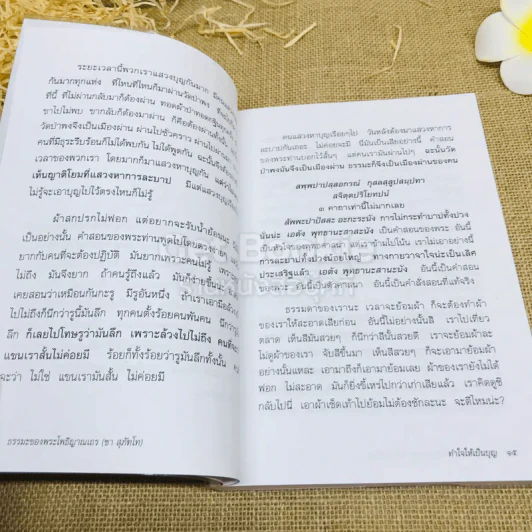 ระยะเวลานี้พวกเราแสวงบุญกันมาก
กันมากทุกแห่ง ที่ไหนที่ไหนก็มาผ่านวัดป่าพง
ที่นี้ ที่ไม่ผ่านกลับมาก็ต้องผ่าน
ขาไปไม่พบ ขากลับก็ต้องมาผ่าน
พงจึงเป็นเมืองผ่าน ผ่านไปชั่วคราว
คนที่มีธุระรีบร้อนก็ไม่ได้พบกัน ไม่ได้พูดกัน
เวลาของพวกเรา โดยมากก็มาแสวงหาบุญกัน
เห็นญาติโยมที่แสวงหาการละบาป
ไม่รู้จะเอาบุญไปไว้ตรงไหนก็ไม่รู้
ผ้าสกปรกไม่ฟอก แต่อยากจะรับน้ำย้อม
เป็นอย่างนั้น คำสอนของพระท่านพูดไปโดยตรงง่ายๆ
ยากกับคนที่จะต้องปฏิบัติ มันยากเพราะคนไม่รู้
ไม่ถึง มันจึงยาก ถ้าคนรู้ถึงแล้ว มันก็ง่าย
เคยสอนว่าเหมือนกันกะรู มีรูอันหนึ่ง ถ้าเราเอามือล้วง
ไปไม่ถึงก็นึกว่ารูนี้มันลึก ทุกคนตั้งร้อยคนพันคน นึกว่ารู
ลึก ก็เลยไปโทษรูว่ามันลึก เพราะล้วงไปไม่ถึง
แขนเราสั้นไม่ค่อยมี ร้อยก็ทั้งร้อยว่ารูมันลึกทั้งนั้น
จะว่า ไม่ใช่ แขนเรามันสั้น ไม่ค่อยมี
ธรรมะของพระโพธิญาณเถร (ชา สุภัทโท)
คนแสวงหาบุญเรื่อยๆไป วันหลังต้องมาแสวงหาการ
ละบาปกันเถอะ ไม่ค่อยจะมี นี่มันเป็นเสียอย่างนี้ คำสอน
ของพระท่านบอกไว้สั้นๆ แต่คนเรามันผ่านไปๆ ฉะนั้นวัด
ป่าพงมันจึงเป็นเมืองผ่าน ธรรมะก็จึงเป็นเมืองผ่านของคน
สพฺพปาปสฺสอกรณํ กุสลสฺสูปสมฺปทา
สจิตฺตปริโยทปนํ
๓ คาถาเท่านี้ไม่มากเลย
สัพพะปาปัสสะ อะกะระณัง การไม่กระทำบาปทั้งปวง
นั่นน่ะ เอตัง พุทธานะสาสะนัง เป็นคำสอนของพระ อันนี้
เป็นหัวใจของพุทธศาสนา แต่เราข้ามไปโน้น เราไม่เอาอย่างนี้
การละบาปทั้งปวงน้อยใหญ่ ทางกายวาจาใจน่ะเป็นเลิศ
ประเสริฐแล้ว เอตัง พุทธานะสาสะนัง อันนี้เป็นคำสอนของ
พระ อันนี้เป็นตัวศาสนา อันนี้เป็นคำสั่งสอนที่แท้จริง
ธรรมดาของเรานะ เวลาจะย้อมผ้า ก็จะต้องทำผ้า
ของเราให้สะอาดเสียก่อน อันนี้ไม่อย่างนั้นสิ เราไปเที่ยว
ตลาด เห็นสีมันสวยๆ ก็นึกว่าสีนั้นสวยดี เราจะย้อมผ้าละ
ไม่ดูผ้าของเรา จับสีขึ้นมา เห็นสีสวยๆ ก็จะเอามาย้อมผ้า
อย่างนั้นแหละ เอามาถึงก็เอามาย้อมเลย ผ้าของเรายังไม่ได้
ฟอก ไม่สะอาด มันก็ยิ่งขี้เหร่ไปกว่าเก่าเสียแล้ว เราคิดดูซิ
กลับไปนี่ เอาผ้าเช็ดเท้าไปย้อมไม่ต้องซักละนะ จะดีไหมน่ะ?
ทำใจให้เป็นบุญ ๑๕